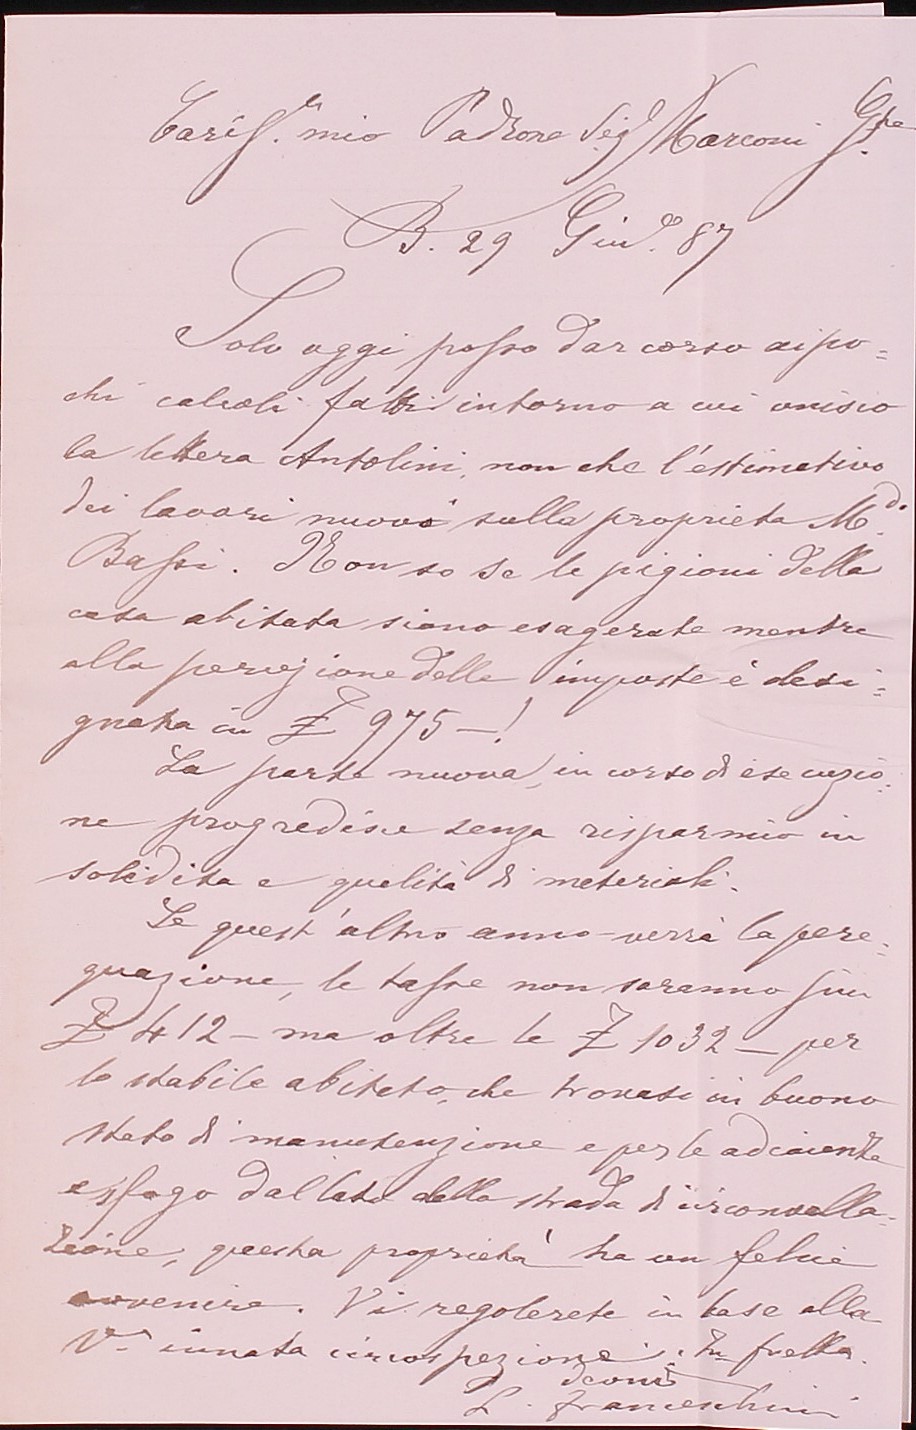 Cariss.º mio Padrone Sigr Marconi Gpe
B. 29 Giu.º 87
Solo oggi posso dar corso ai po=
chi calcoli fatti intorno a cui unisco
la lettera Antolini, non che l'estimativo
dei lavori nuovi sulla proprietà M.
Bassi. Non so se le pigioni della
casa abitata siano esagerate mentre
alla percezione delle imposte è desi=
gnata in £ 975 —!
La parte nuova, in corso di esecuzio=
ne progredisce senza risparmio in
solidità e qualità di materiali.
Se quest'altro anno verrà la pere=
quazione, le tasse non saranno più
£ 412 — ma oltre le £ 1032 — per
lo stabile abitato, che trovasi in buono
stato di manutenzione e per le adiacenze
e sfogo dal lato della strada di circonvalla=
zione, questa proprietà ha un felice
avvenire. Vi regolerete in base alla
Vª innata circospezione. In fretta.
L. Franceschini